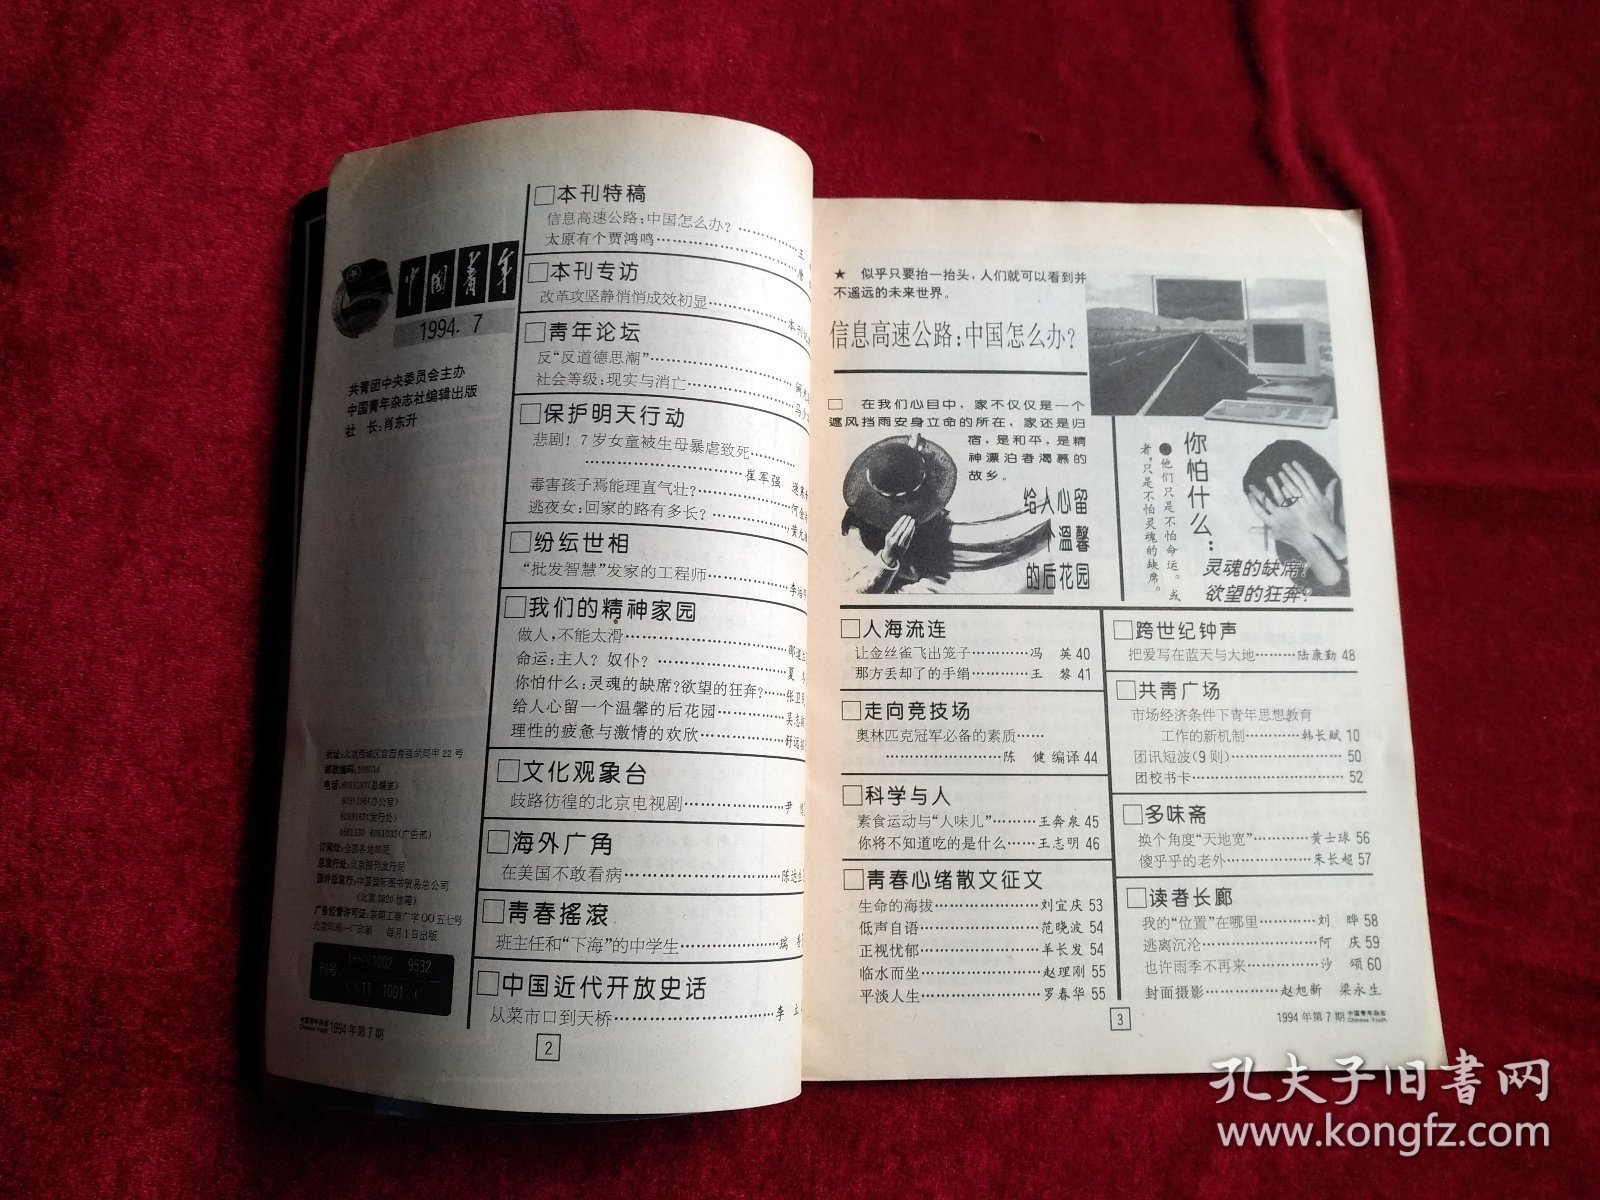 中国青年
1994. 7
共青团中央委员会主办
中国青年杂志社编辑出版
社 长:肖东升
地址:北京西城区官园育强胡同甲 22 号
邮政编码:100034
电话:6031197(总编室)
6031196(办公室)
6018167(发行处)
订阅处:全国各地邮局
总发行处:北京报刊发行局
国外总发行:中国国际图书贸易总公司
(北京 2820 信箱)
广告经营许可证:京西工商广字 00 五七号
每月 1 日出版
刊号:
1002-9532
11 1001
中国青年杂志 Chinese Youth 1994 年第 7 期
□本刊特稿
信息高速公路:中国怎么办?…………王
太原有个贾鸿鸣……………………
□本刊专访
改革攻坚静悄悄成效初显…………本刊记
□青年论坛
反“反道德思潮”……………………
社会等级:现实与消亡………………
□保护明天行动
悲剧! 7 岁女童被生母暴虐致死…………
……………………崔军强
毒害孩子焉能理直气壮?……………何
逃夜女:回家的路有多长?…………黄
□纷纭世相
“批发智慧”发家的工程师……………李
□我们的精神家园
做人,不能太滑……………………
命运:主人? 奴仆? …………………夏
你怕什么:灵魂的缺席?欲望的狂奔?……张卫
给人心留一个温馨的后花园……………吴志
理性的疲惫与激情的欢欣………………舒远
□文化观象台
歧路彷徨的北京电视剧………………尹
□海外广角
在美国不敢看病……………………陈达
□青春摇滚
班主任和“下海”的中学生………………瑞
□中国近代开放史话
从菜市口到天桥……………………李 立
2
★ 似乎只要抬一抬头,人们就可以看到并
不遥远的未来世界。
信息高速公路:中国怎么办?
□ 在我们心目中,家不仅仅是一个
遮风挡雨安身立命的所在,家还是归
宿,是和平,是精
神漂泊者渴慕的
故乡。
给人心留
个温馨
的后花园
你怕什么:
●他们只是不怕命运。或
者,只是不怕灵魂的缺席。
灵魂的缺席?
欲望的狂奔?
□人海流连
让金丝雀飞出笼子…………冯 英 40
那方丢却了的手绢…………王 黎 41
□走向竞技场
奥林匹克冠军必备的素质……
……………………陈 健 编译 44
□科学与人
素食运动与“人味儿”………王奔泉 45
你将不知道吃的是什么……王志明 46
□青春心绪散文征文
生命的海拔………………刘宜庆 53
低声自语…………………范晓波 54
正视忧郁…………………羊长发 54
临水而坐…………………赵理刚 55
平淡人生…………………罗春华 55
□跨世纪钟声
把爱写在蓝天与大地………陆康勤 48
□共青广场
市场经济条件下青年思想教育
工作的新机制…………韩长赋 10
团讯短波(9 则)…………………… 50
团校书卡………………………… 52
□多味斋
换个角度“天地宽”…………黄士球 56
傻乎乎的老外………………朱长超 57
□读者长廊
我的“位置”在哪里…………刘 晔 58
逃离沉沦…………………阿 庆 59
也许雨季不再来……………沙 颂 60
封面摄影……………赵旭新 梁永生
3
1994 年第 7 期 中国青年杂志 Chinese Youth
孔夫子旧书网
www.kongfz.com